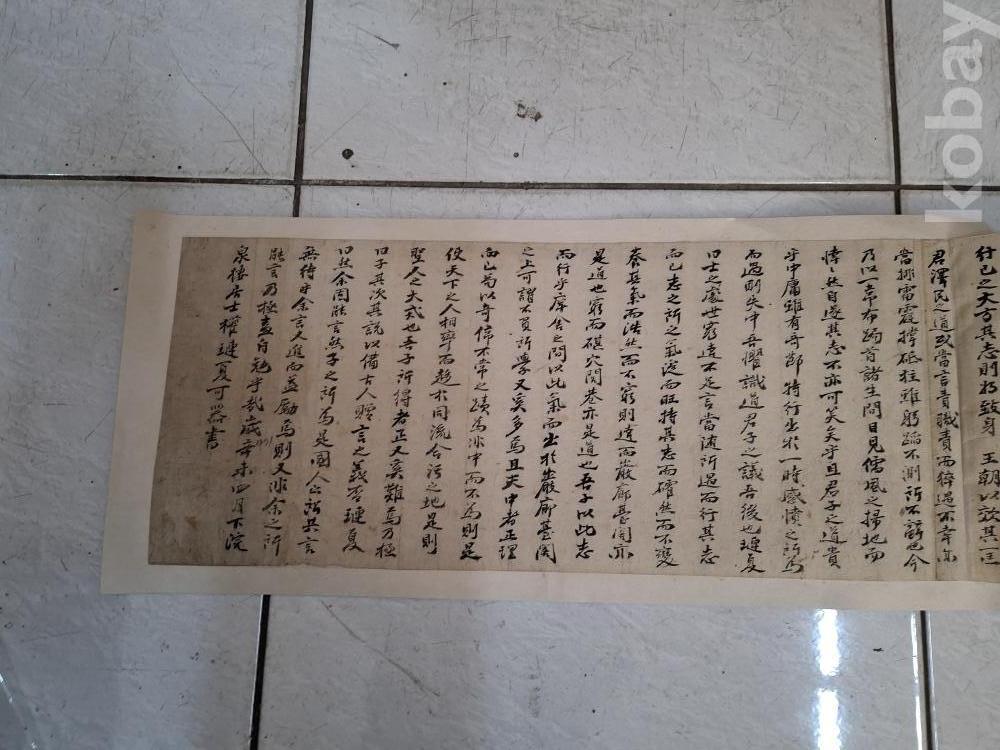 行己之大方其志則將致身 王朝以效其匡
君澤民之道或當言責職責而得過不幸亦
當排雷霆撐砥柱雖躬蹈不測所不辭也今
乃以一韋布踊首諸生間目見儒風之掃地而
悻悻然自遂其志不亦可笑矣乎且君子之道貴
乎中庸雖有奇節特行出於一時感憤之所為
而過則失中吾懼識道君子之議吾後也璉夏
曰士之處世窮達不足言當隨所遇而行其志
而已志之所之氣從而旺持其志而確然而不變
養其氣而浩然而不窮則達而巖廊臺閣亦
是道也窮而礀穴閭巷亦是道也吾子以此志
而行乎庠舍之間以此氣而出於巖廊臺閣
之上可謂不負所學又奚多焉且夫中者正理
而已苟以奇偉不常之蹟為非中而不為則是
使天下之人相率而趍於同流合污之地是則
聖人之大戒也吾子所得者正又奚難焉乃極
曰子其次其說以備古人贈言之義否璉夏
曰然余固能言然子之所為是國人公所共言
無待乎余言人進而益勵焉則又非余之所
能言乃極盍自勉乎哉歲辛未四月下浣
泉棲居士權璉夏可器書
kobay